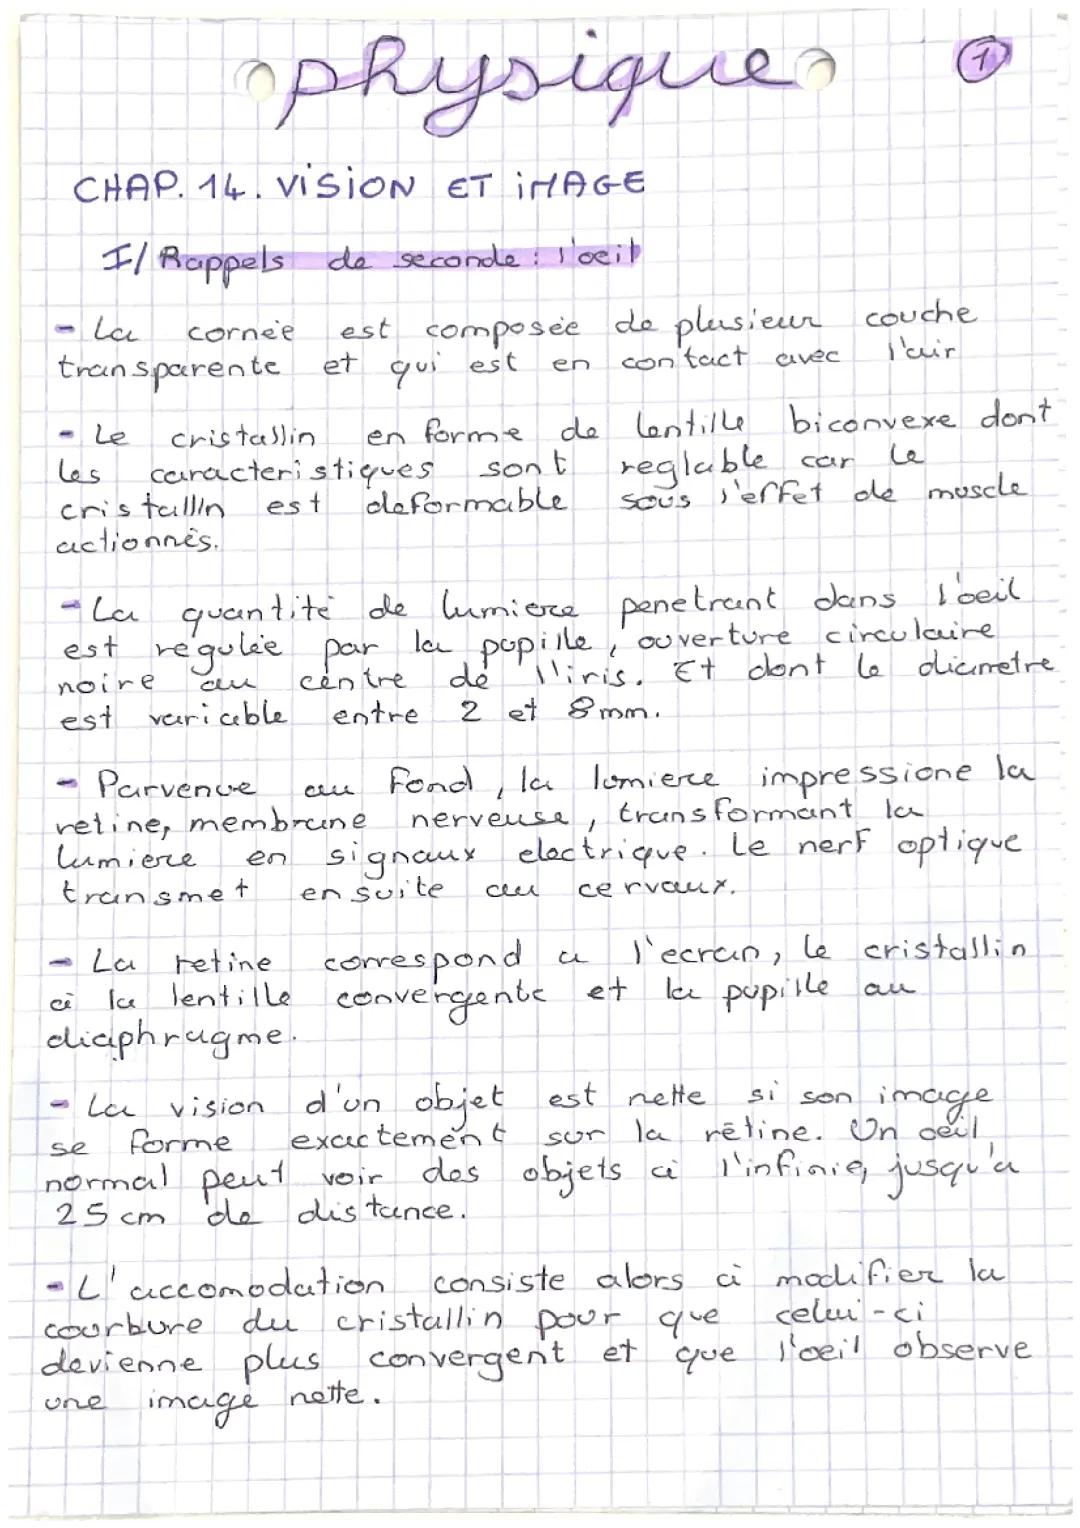 physique
1
CHAP. 14. VISION ET IMAGE
I/ Rappels de seconde : l'oeil
- La cornée est composée de plusieur couche
transparente et qui est en contact avec l'air
- Le cristallin en forme de lentille biconvexe dont
les caracteristiques sont reglable car le
cristallin est deformable sous l'effet de muscle
actionnés.
- La quantité de lumiere penetrant dans l'oeil
est régulée par la pupille, ouverture circulaire
noire au centre de l'iris. Et dont le diametre
est variable entre 2 et 8mm.
- Parvenue au fond, la lumiere impressione la
retine, membrane nerveuse, transformant la
lumiere en signaux electrique. Le nerf optique
transmet ensuite au cervaux.
- La retine correspond a l'ecran, le cristallin
à la lentille convergente et la pupille au
diaphragme.
- La vision d'un objet est nette si son image
se forme exactement sur la rétine. Un oeil
normal peut voir des objets à l'infinie, jusqu'a
25 cm de distance.
- L'accomodation consiste alors à modifier la
courbure du cristallin pour que celui-ci
devienne plus convergent et que l'oeil observe
une image nette.